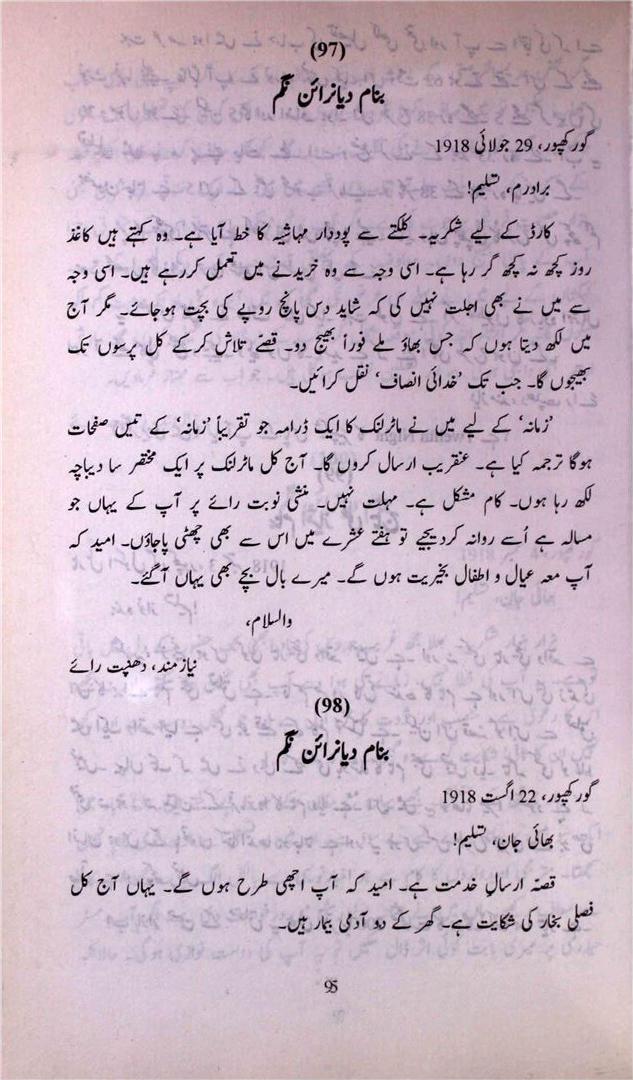 (97)
بنام دیانرائن نگم
گورکھپور، 29 جولائی 1918
برادرم، تسلیم!
کارڈ کے لیے شکریہ۔ کلکتے سے پوددار مہاشیہ کا خط آیا ہے۔ وہ کہتے ہیں کاغذ
روز کچھ نہ کچھ گر رہا ہے۔ اسی وجہ سے وہ خریدنے میں تعمل کررہے ہیں۔ اسی وجہ
سے میں نے بھی اجلت نہیں کی کہ شاید دس پانچ روپے کی بچت ہوجائے۔ مگر آج
میں لکھ دیتا ہوں کہ جس بھاؤ ملے فوراً بھیج دو۔ قصے تلاش کرکے کل پرسوں تک
بھیجوں گا۔ جب تک ’خدائی انصاف‘ نقل کرائیں۔
’زمانہ‘ کے لیے میں نے ماٹرلنک کا ایک ڈرامہ جو تقریباً ’زمانہ‘ کے تیس صفحات
ہوگا ترجمہ کیا ہے۔ عنقریب ارسال کروں گا۔ آج کل ماٹرلنک پر ایک مختصر سا دیباچہ
لکھ رہا ہوں۔ کام مشکل ہے۔ مہلت نہیں۔ منشی نوبت رائے پر آپ کے یہاں جو
مسالہ ہے اُسے روانہ کردیجیے تو ہفتے عشرے میں اس سے بھی چھٹی پاجاؤں۔ امید کہ
آپ معہ عیال و اطفال بخیریت ہوں گے۔ میرے بال بچے بھی یہاں آگئے۔
والسلام،
نیازمند، دھنپت رائے
(98)
بنام دیانرائن نگم
گورکھپور، 22 اگست 1918
بھائی جان، تسلیم!
قصہ ارسالِ خدمت ہے۔ امید کہ آپ اچھی طرح ہوں گے۔ یہاں آج کل
فصلی بخار کی شکایت ہے۔ گھر کے دو آدمی بیمار ہیں۔
95